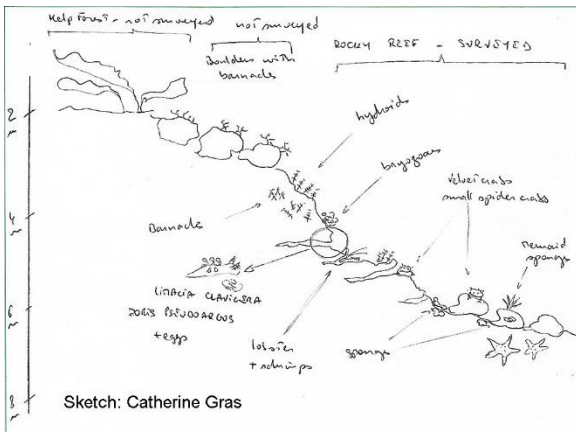 Kelp Forest - not surveyed
not surveyed
Boulders with
barnacles
ROCKY REEF - SURVEYED
2
m
hydroids
bryozoans
velvet crabs
small spider crabs
4
m
Barnacles
mermaid
sponge
LIMACIA CLAVIGERA
DORIS PSEUDOARGUS
+ eggs
6
m
lobster
+ schrimps
sponge
8
m
Sketch: Catherine Gras